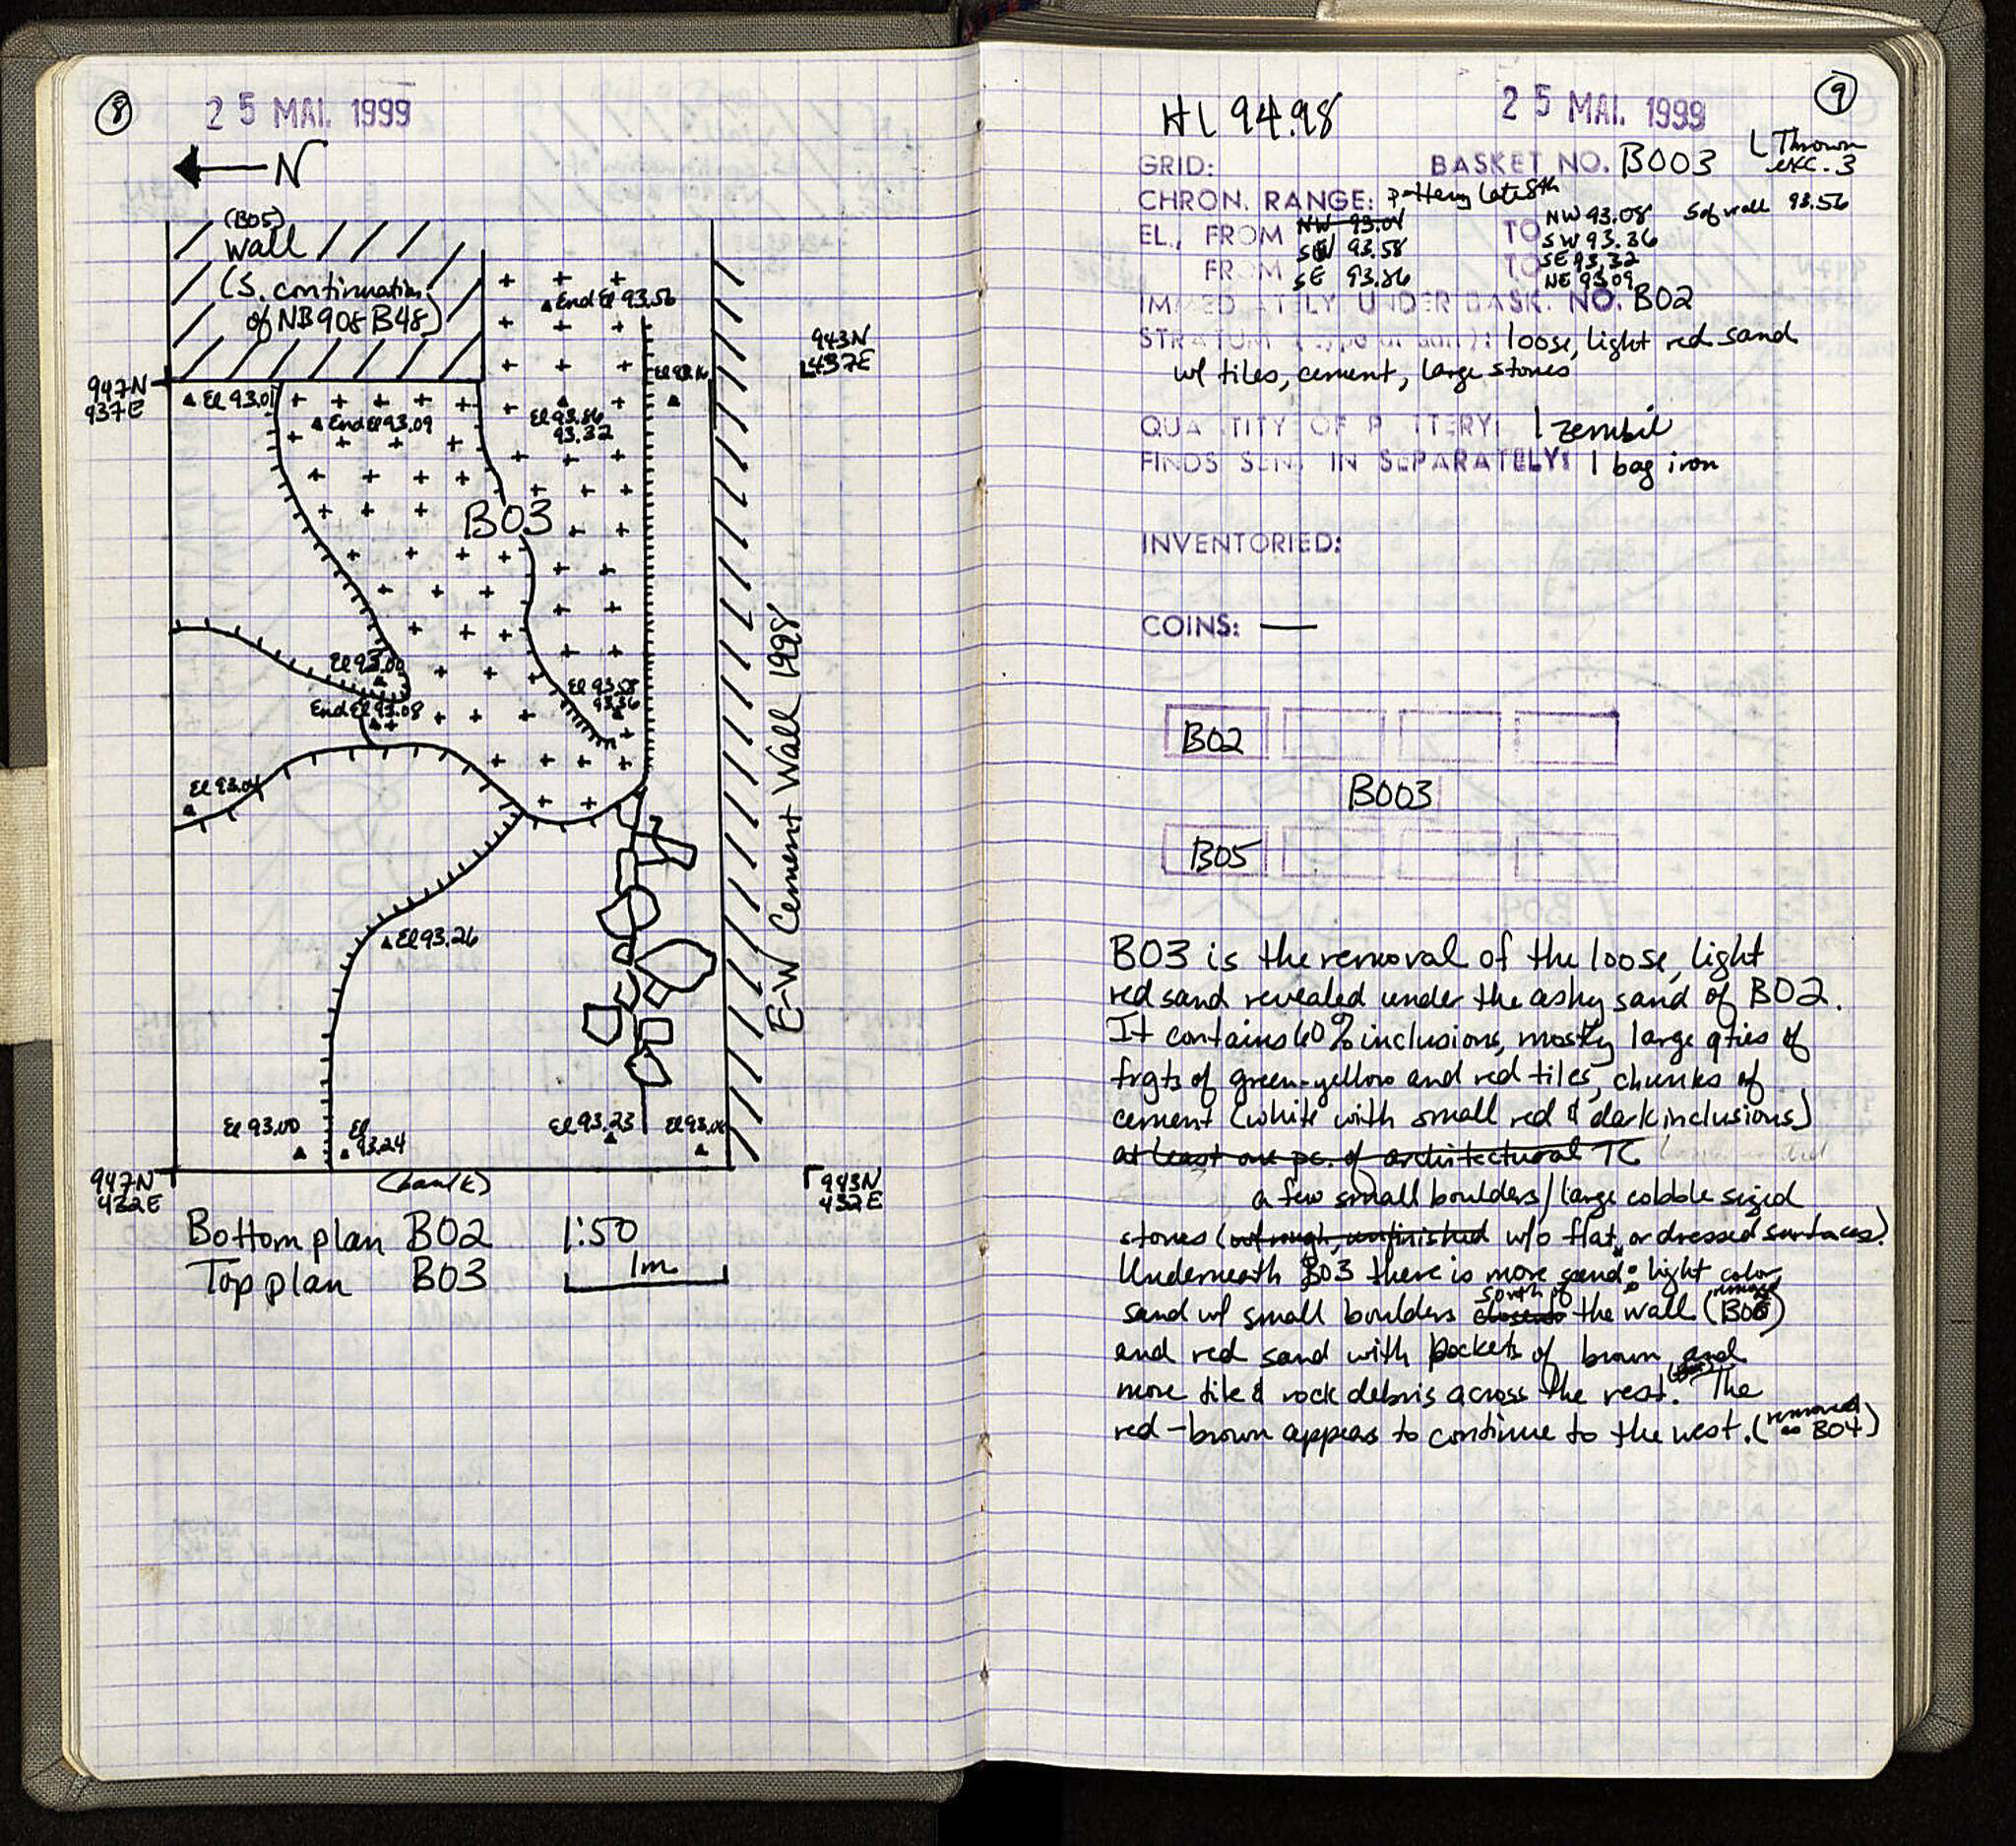 8
25 MAI. 1999
N
(B05)
Wall
(S. continuation
of NB 908 B48)
End El 93.56
943N
437E
947N
437E
El 93.01
End El 93.09
El 93.86
93.32
B03
El 93.00
End El 93.08
El 93.58
93.36
El 93.04
E-W Cement Wall 1998
El 93.26
El 93.00
El
93.24
El 93.23
947N
432E
(baulk)
943N
432E
Bottom plan B02 1:50
Top plan B03 1m
9
HL 94.98
25 MAI. 1999
GRID: BASKET NO. B003
L Thrown
exc. 3
CHRON. RANGE: pottery late 8th
EL., FROM NW 93.04 TO NW 93.08 S of wall 93.56
SW 93.58 SW 93.36
FROM SE 93.86 TO SE 93.32
NE 93.09
IMMEDIATELY UNDER BASK. NO. B02
loose, light red sand
w/ tiles, cement, large stones
QUANTITY OF POTTERY: 1 zembil
FINDS SENT IN SEPARATELY: 1 bag iron
INVENTORIED:
COINS: —
B02
B003
B05
B03 is the removal of the loose, light
red sand revealed under the ashy sand of B02.
It contains 60% inclusions, mostly large qties of
frgts of green-yellow and red tiles, chunks of
cement (white with small red & dark inclusions)
at least one pc. of architectural TC
a few small boulders/large cobble sized
stones (w/ rough, unfinished w/o flat, or dressed surfaces).
Underneath B03 there is more sand: light color
sand w/ small boulders south of the wall (B06)
and red sand with pockets of brown and
more tile & rock debris across the rest. The
red-brown appears to continue to the west. (removed
as B04)